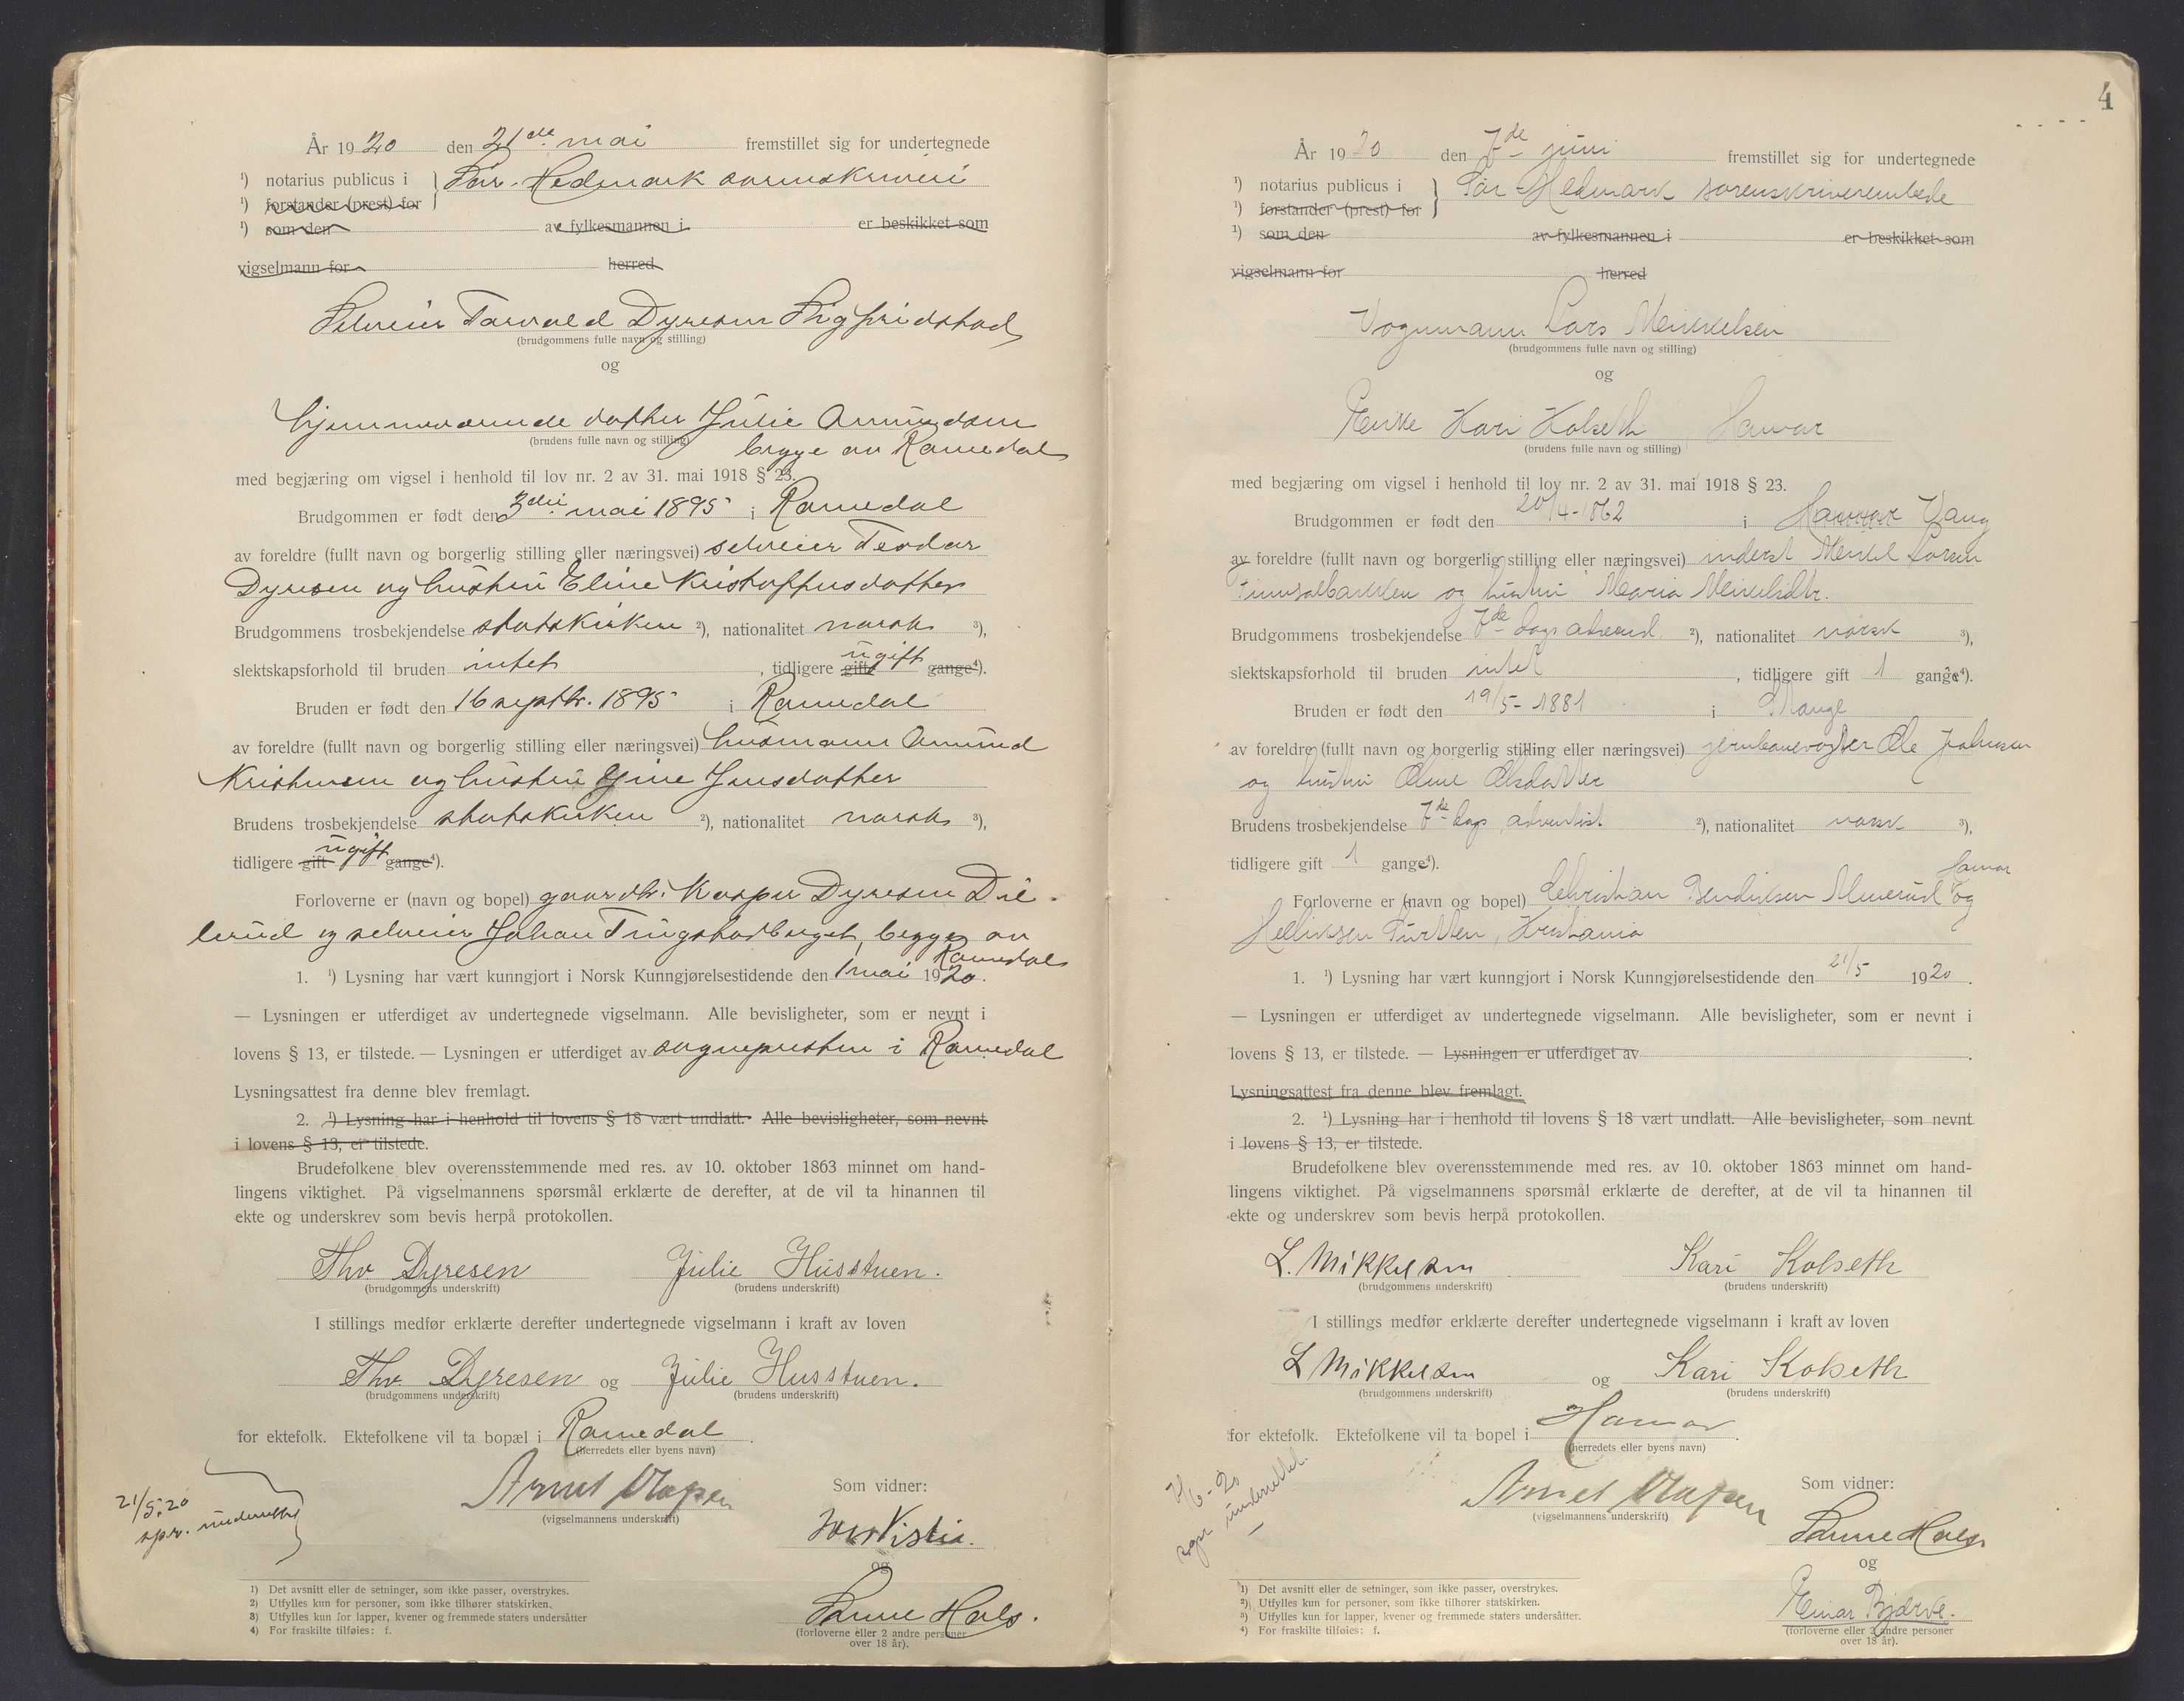 År 1920 den 21de mai fremstillet sig for undertegnede
1) notarius publicus i } Sør-Hedmark sorenskriveri
1) forstander (prest) for
1) som den av fylkesmannen i er beskikket som
vigselmann for herred
Selveier Torvald Dyresen Sigfridstad
(brudgommens fulle navn og stilling)
og
hjemmeværende datter Julie Amundsen
(brudens fulle navn og stilling)
begge av Romedal
med begjæring om vigsel i henhold til lov nr. 2 av 31. mai 1918 § 23.
Brudgommen er født den 3die mai 1895 i Romedal
av foreldre (fullt navn og borgerlig stilling eller næringsvei) selveier Teodor
Dyresen og hustru Eline Kristoffersdatter
Brudgommens trosbekjendelse statskirken 2), nationalitet norsk 3),
slektskapsforhold til bruden intet, tidligere gift ugift gange4).
Bruden er født den 16 septbr. 1895 i Romedal
av foreldre (fullt navn og borgerlig stilling eller næringsvei) husmann Amund
Kristensen og hustru Gine Jensdatter
Brudens trosbekjendelse statskirken 2), nationalitet norsk 3),
tidligere gift ugift gange4).
Forloverne er (navn og bopel) gaardbr. Kasper Dyresen Dæ-
lerud og selveier Johan Tingstadberget, begge av
Romedal
1. 1) Lysning har vært kunngjort i Norsk Kunngjørelsestidende den 1 mai 1920.
— Lysningen er utferdiget av undertegnede vigselmann. Alle bevisligheter, som er nevnt i
lovens § 13, er tilstede. — Lysningen er utferdiget av sognepresten i Romedal
Lysningsattest fra denne blev fremlagt.
2. 1) Lysning har i henhold til lovens § 18 vært undlatt. Alle bevisligheter, som nevnt
i lovens § 13, er tilstede.
Brudefolkene blev overensstemmende med res. av 10. oktober 1863 minnet om hand-
lingens viktighet. På vigselmannens spørsmål erklærte de derefter, at de vil ta hinannen til
ekte og underskrev som bevis herpå protokollen.
Thv Dyresen Julie Husstuen.
(brudgommens underskrift) (brudens underskrift)
I stillings medfør erklærte derefter undertegnede vigselmann i kraft av loven
Thv. Dyresen og Julie Husstuen.
(brudgommens underskrift) (brudens underskrift)
for ektefolk. Ektefolkene vil ta bopæl i Romedal.
(herredets eller byens navn)
21/5.20
spr. underrettet
Som vidner:
(vigselmannens underskrift)
og
Hals.
(forloverne eller 2 andre personer
over 18 år).
1) Det avsnitt eller de setninger, som ikke passer, overstrykes.
2) Utfylles kun for personer, som ikke tilhører statskirken.
3) Utfylles kun for lapper, kvener og fremmede staters undersåtter
4) For fraskilte tilføies: f.
4
År 1920 den 7de juni fremstillet sig for undertegnede
1) notarius publicus i } Sør-Hedmark sorenskriverembede
1) forstander (prest) for
1) som den av fylkesmannen i er beskikket som
vigselmann for herred
Vognmann Lars Mikkelsen
(brudgommens fulle navn og stilling)
og
Enke Kari Kolseth, Hamar
(brudens fulle navn og stilling)
med begjæring om vigsel i henhold til lov nr. 2 av 31. mai 1918 § 23.
Brudgommen er født den 20/4-1862 i Hamar Vang
av foreldre (fullt navn og borgerlig stilling eller næringsvei) inderst Mikkel Larsen
og hustru Maria Mikkelsdtr.
Brudgommens trosbekjendelse 7de dags advent. 2), nationalitet norsk 3),
slektskapsforhold til bruden intet, tidligere gift 1 gange4).
Bruden er født den 19/5-1881 i Stange
av foreldre (fullt navn og borgerlig stilling eller næringsvei) jernbanevogter Ole Johnsen
og hustru Oline Olsdatter
Brudens trosbekjendelse 7de dags adventist 2), nationalitet norsk 3),
tidligere gift 1 gange4).
Hamar
Forloverne er (navn og bopel) Christian Bendiksen Almerud og
Helliksen, Kristiania
1. 1) Lysning har vært kunngjort i Norsk Kunngjørelsestidende den 21/5 1920.
— Lysningen er utferdiget av undertegnede vigselmann. Alle bevisligheter, som er nevnt i
lovens § 13, er tilstede. — Lysningen er utferdiget av .
Lysningsattest fra denne blev fremlagt.
2. 1) Lysning har i henhold til lovens § 18 vært undlatt. Alle bevisligheter, som nevnt
i lovens § 13, er tilstede.
Brudefolkene blev overensstemmende med res. av 10. oktober 1863 minnet om hand-
lingens viktighet. På vigselmannens spørsmål erklærte de derefter, at de vil ta hinannen til
ekte og underskrev som bevis herpå protokollen.
L. Mikkelsen Kari Kolseth
(brudgommens underskrift) (brudens underskrift)
I stillings medfør erklærte derefter undertegnede vigselmann i kraft av loven
L Mikkelsen og Kari Kolseth
(brudgommens underskrift) (brudens underskrift)
for ektefolk. Ektefolkene vil ta bopel i Hamar.
(herredets eller byens navn)
7/6-20
spr. underrettet.
Som vidner:
(vigselmannens underskrift)
Hals
og
Einar Bjørve.
(forloverne eller 2 andre personer
over 18 år).
1) Det avsnitt eller de setninger, som ikke passer, overstrykes.
2) Utfylles kun for personer, som ikke tilhører statskirken.
3) Utfylles kun for lapper, kvener og fremmede staters undersåtter.
4) For fraskilte tilføies: f.